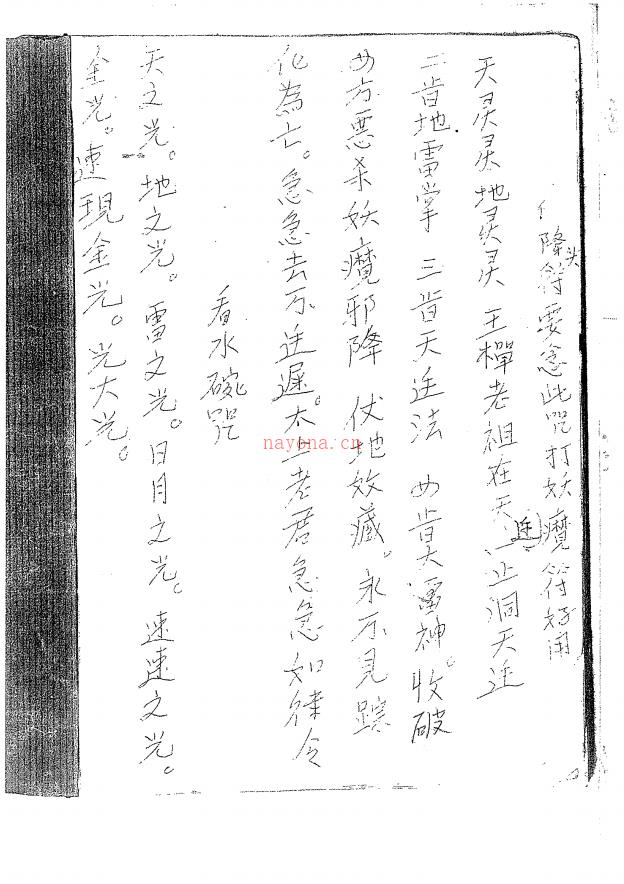 降头符要念此咒打妖魔符好用
天灵灵地灵灵 王樿老祖在天 止洞天迬
二旨地雷掌 三旨天迬法 四旨大雷神。收破
四方恶杀妖魔邪降 伏地效藏。永不见踪
化為亡。急急去不迬遲。太上老君急急如律令
看水碗咒
天之光。地之光。雷之光。日月之光。速速之光。
金光。速現金光。光大光。
nayona.cn